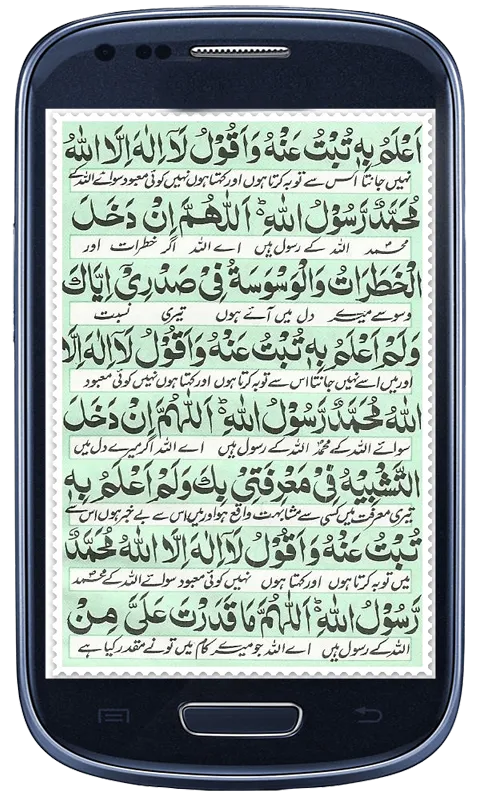 اَعْلَمُ بِهٖ تُبْتُ عَنْهُ وَاَقُوْلُ لَآ اِلٰهَ اِلَّا اللّٰهُ
نہیں جانتا اس سے توبہ کرتا ہوں اور کہتا ہوں نہیں کوئی معبود سوائے اللہ کے
مُحَمَّدٌ رَّسُوْلُ اللّٰهِ ؕ اَللّٰهُمَّ اِنْ دَخَلَ
محمد اللہ کے رسول ہیں اے اللہ اگر خطرات اور
الْخَطَرَاتُ وَالْوَسْوَسَةُ فِیْ صَدْرِیْ اِیَّاكَ
وسوسے میرے دل میں آئے ہوں تیری نسبت
وَلَمْ اَعْلَمْ بِهٖ تُبْتُ عَنْهُ وَاَقُوْلُ لَآ اِلٰهَ اِلَّا
اور میں اسے نہیں جانتا اس سے توبہ کرتا ہوں اور کہتا ہوں نہیں کوئی معبود
اللّٰهُ مُحَمَّدٌ رَّسُوْلُ اللّٰهِ ؕ اَللّٰهُمَّ اِنْ دَخَلَ
سوائے اللہ کے محمد اللہ کے رسول ہیں اے اللہ اگر میرے دل میں
التَّشْبِیْهُ فِیْ مَعْرِفَتِیْ بِكَ وَلَمْ اَعْلَمْ بِهٖ
تیری معرفت میں کسی سے مشابہت واقع ہو اور میں اس سے بے خبر ہوں اس سے
تُبْتُ عَنْهُ وَاَقُوْلُ لَآ اِلٰهَ اِلَّا اللّٰهُ مُحَمَّدٌ
میں توبہ کرتا ہوں اور کہتا ہوں نہیں کوئی معبود سوائے اللہ کے محمد
رَّسُوْلُ اللّٰهِ ؕ اَللّٰهُمَّ مَا قَدَرْتَ عَلَیَّ مِنْ
اللہ کے رسول ہیں اے اللہ جو میرے کام میں تو نے مقدر کیا ہے